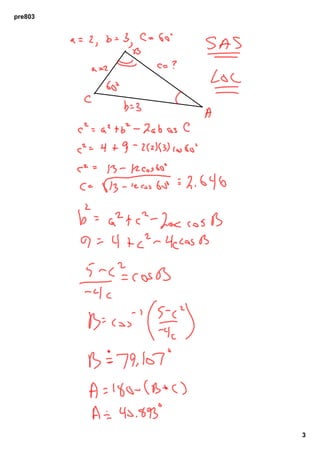 pre803
a = 2, b = 3, C = 60°
SAS
B
a=2
c = ?
LOC
60°
C
b=3
A
c² = a² + b² - 2ab cos C
c² = 4 + 9 - 2(2)(3) cos 60°
c² = 13 - 12 cos 60°
c = √13 - 12 cos 60° = 2.646
b² = a² + c² - 2ac cos B
9 = 4 + c² - 4c cos B
5 - c² / -4c = cos B
B = cos⁻¹ (5 - c² / -4c)
B ≐ 79.107°
A = 180 - (B + C)
A ≐ 40.893°
3